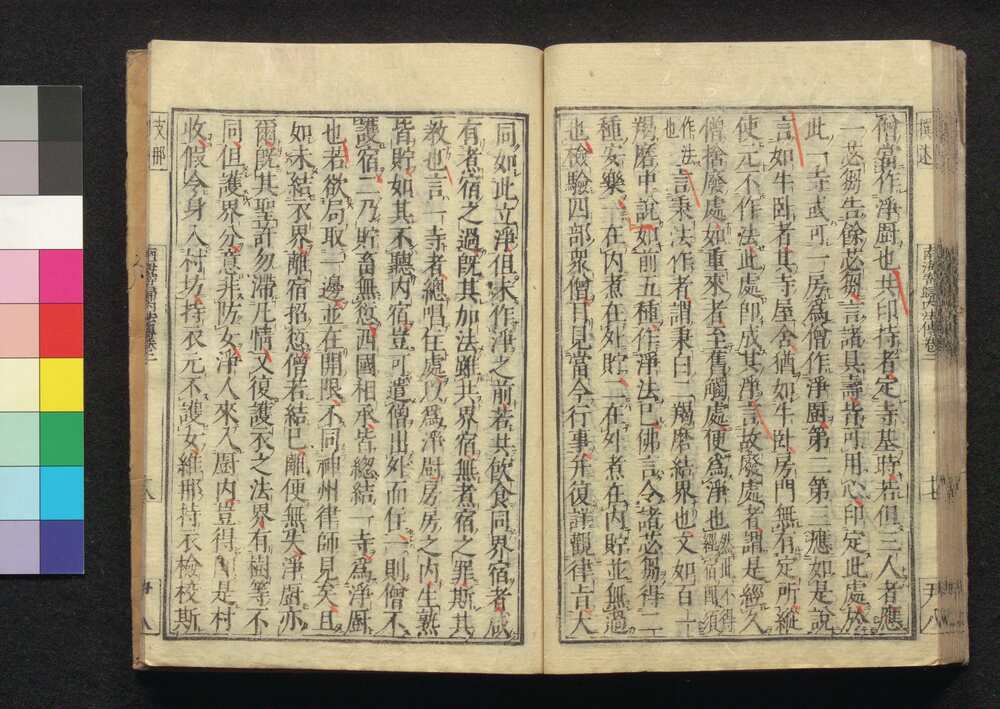 僧當作淨厨也共印持者定寺基時若但三人者應
一苾芻告餘苾芻言諸具壽皆可用心印定此處於
此一寺或可一房爲僧作淨厨第二第三應如是說
言如牛卧者其寺屋舍猶如牛卧房門無有定所縱
使元不作法此處即成其淨言故廢處者謂是經久
僧捨廢處如重來者至舊觸處便爲淨也然此不得經宿即須
作法也言秉法作者謂秉白二羯磨結界也文如百一
羯磨中說如前五種作淨法已佛言令諸苾芻得二
種安樂一在內煮在外貯二在外煮在內貯並無過
也檢驗四部衆僧目見當今行事并復詳觀律旨大
同如此立淨但未作淨之前若共飲食同界宿者咸
有煮宿之過旣其加法雖共界宿無煮宿之罪斯其
教也言一寺者總唱住處以爲淨厨房房之內生熟
皆貯如其不聽內宿豈可遣僧出外而住一則僧不
護宿二乃貯畜無愆西國相承皆總結一寺爲淨厨
也若欲局取一邊並在開限不同神州律師見矣且
如未結衣界離宿招愆僧若結已離便無失淨厨亦
爾旣其聖許勿滯凡情又復護衣之法界有樹等不
同但護界分意非防女淨人來入厨內豈得即是村
收假令身入村坊持衣元不護女維那持衣檢校斯
支那